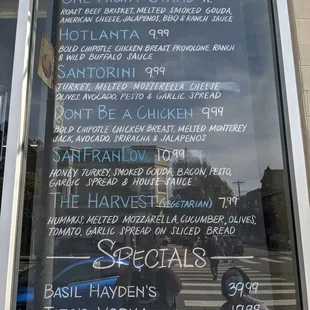 ONE NIGHT STAND 11.
ROAST BEEF BRISKET, MELTED SMOKED GOUDA,
AMERICAN CHEESE, JALAPENOS, BBQ & RANCH SAUCE
HOTLANTA 9.99
BOLD CHIPOTLE CHICKEN BREAST, PROVOLONE, RANCH
& WILD BUFFALO SAUCE
SANTORINI 9.99
TURKEY, MELTED MOZZERELLA CHEESE,
OLIVES, AVOCADO, PESTO & GARLIC SPREAD
DON'T BE A CHICKEN 9.99
BOLD CHIPOTLE CHICKEN BREAST, MELTED MONTEREY
JACK, AVOCADO, SRIRACHA & JALAPENOS
SANFRANLOV 10.99
HONEY TURKEY, SMOKED GOUDA, BACON, PESTO,
GARLIC SPREAD & HOUSE SAUCE
THE HARVEST (VEGETARIAN) 7.99
HUMMUS, MELTED MOZZARELLA, CUCUMBER, OLIVES,
TOMATO, GARLIC SPREAD ON SLICED BREAD
SPECIALS
BASIL HAYDEN'S 39.99
VODKA 19.99